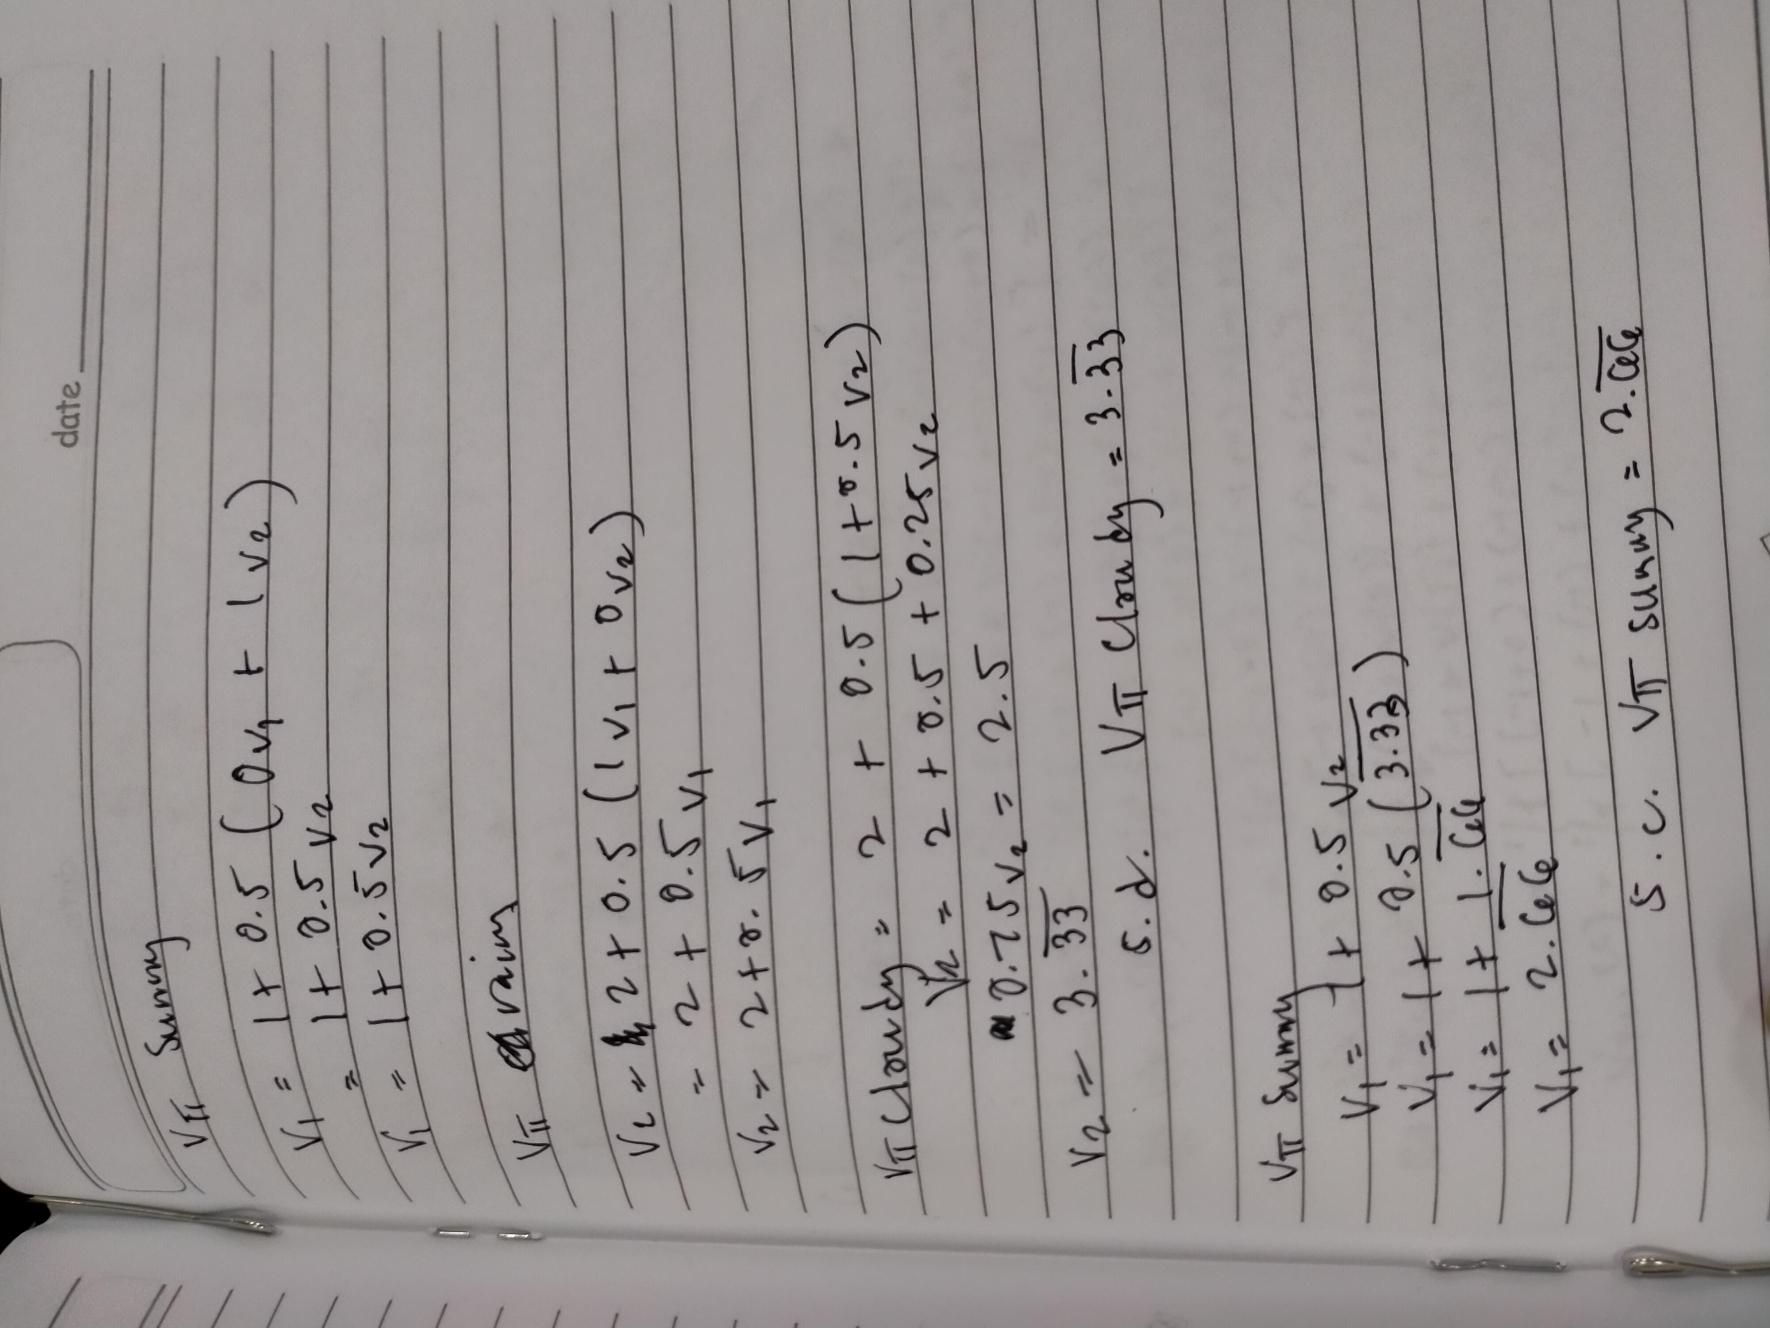 date
Vπ Sunny
V1 = 1 + 0.5 (0v1 + 1v2)
= 1 + 0.5 v2
V1 = 1 + 0.5 v2
Vπ rainy
V2 = 2 + 0.5 (1v1 + 0v2)
= 2 + 0.5 v1
V2 = 2 + 0.5 v1
Vπ Cloudy = 2 + 0.5 (1 + 0.5 v2)
V2 = 2 + 0.5 + 0.25 v2
0.75 v2 = 2.5
V2 = 3.3̅3̅
5.d. Vπ Cloudy = 3.3̅3̅
Vπ Sunny
V1 = 1 + 0.5 v2
V1 = 1 + 0.5 (3̅.3̅3̅)
V1 = 1 + 1.6̅6̅
V1 = 2.6̅6̅
5.c. Vπ sunny = 2.6̅6̅